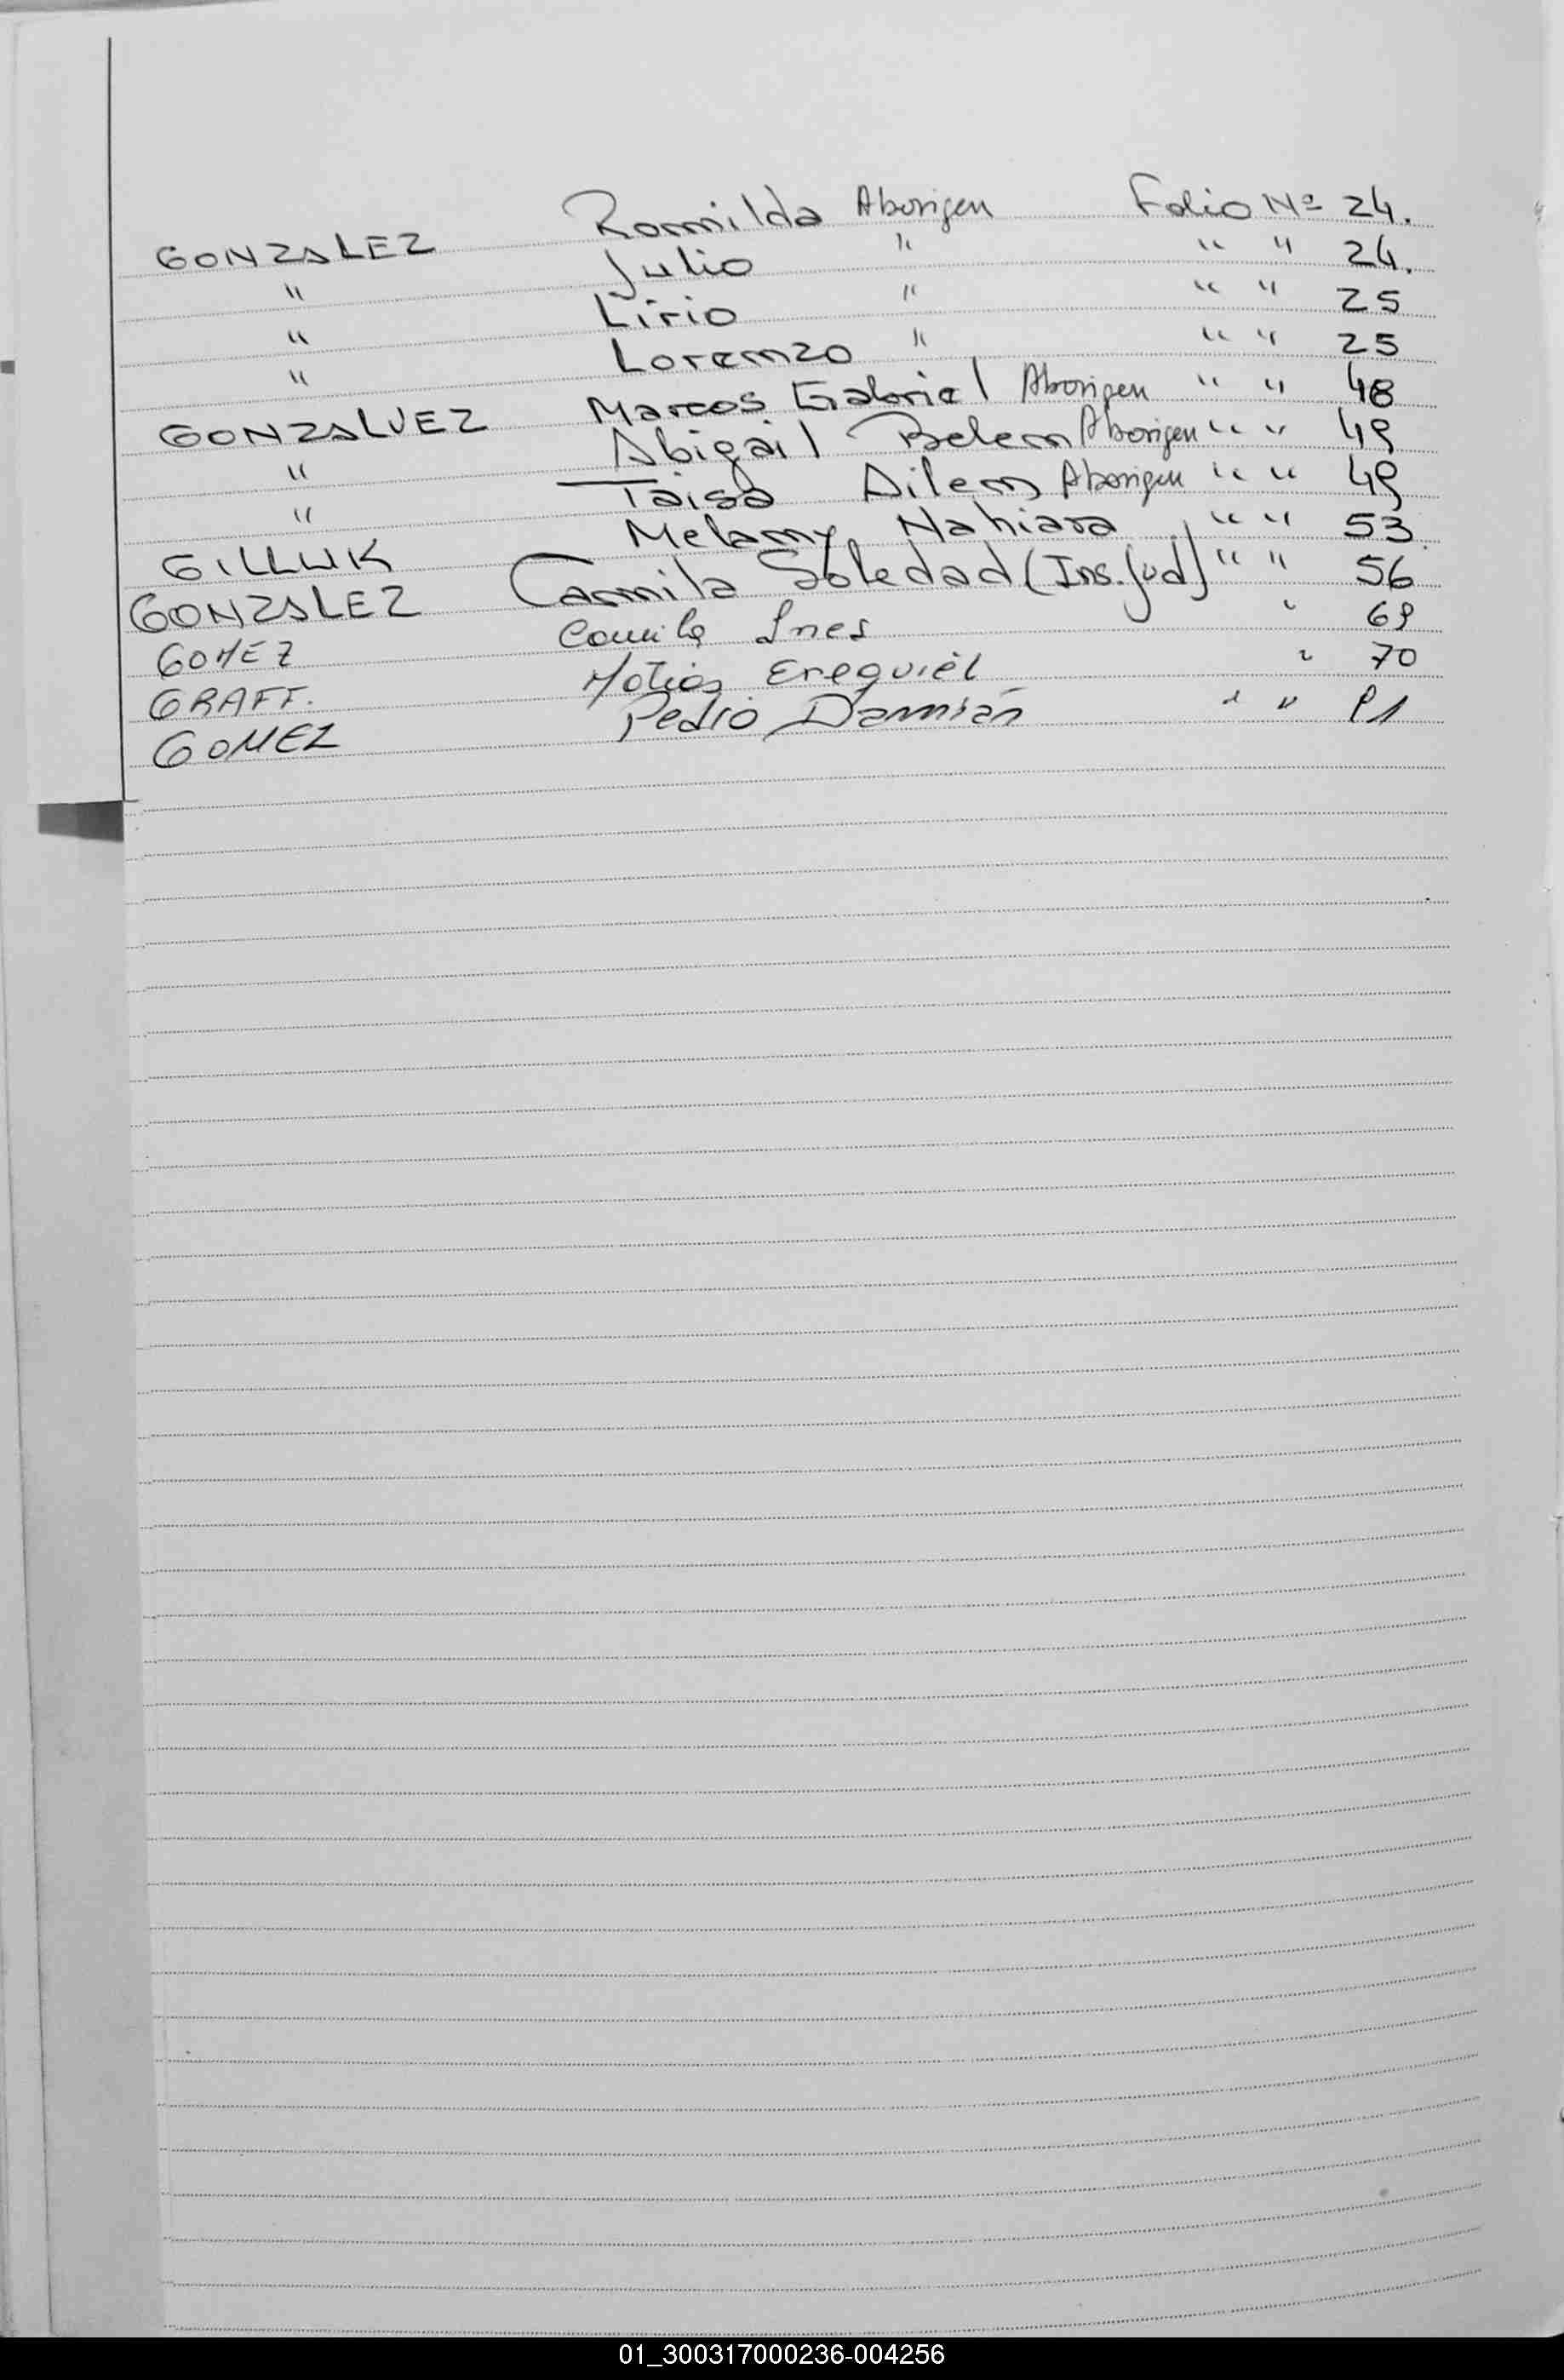 GONZALEZ Romilda Aborigen Folio Nº 24.
" Julio " " " 24.
" Lirio " " " 25
" Lorenzo " " " 25
GONZALVEZ Marcos Gabriel Aborigen " " 48
" Abigail Belem Aborigen " " 49
" Taisa Ailem Aborigen " " 49
GILLUK Melamy Nahiara " " 53
GONZALEZ Camila Soledad (Ins. Jud) " " 56
GOMEZ Camila Ines " 69
GRAFF. Matias Erequiel " 70
GOMEZ Pedro Damián " " 91
01_300317000236-004256